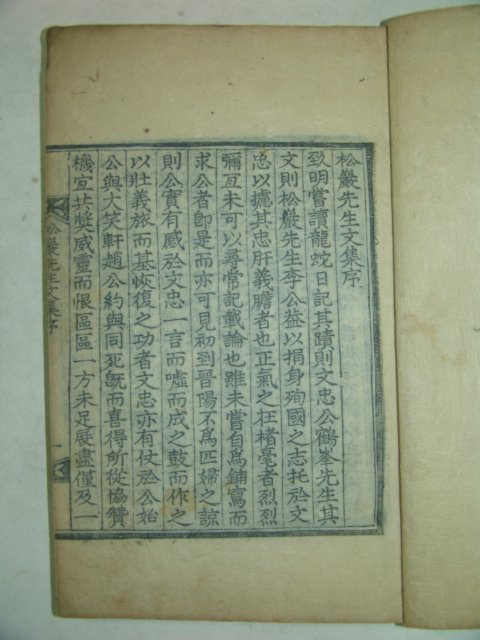 松巖先生文集序
致明嘗讀龍蛇日記其蹟則文忠公鶴峯先生其
文則松巖先生李公益以捐身殉國之志托於文
忠以攄其忠肝義膽者也正氣之在楮毫者烈烈
彌亙未可以尋常記載論也雖未嘗自爲鋪寫而
求公者卽是而亦可見初到晉陽不爲匹婦之諒
則公實有感於文忠一言而噓而成之鼓而作之
以壯義旅而基恢復之功者文忠亦有仗於公始
公與大笑軒趙公約與同死旣而喜得所從協贊
機宜共奬威靈而恨區區一方未足展盡僅及一
松巖先生文集序
一